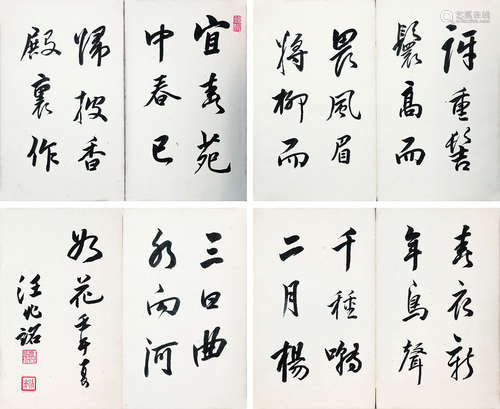 宜春苑
中春已
歸披香
殿裏作
春衣新
年鳥聲
千種囀
二月楊
訝重髻
鬟高而
畏風眉
將柳而
三日曲
水向河
如花 壬午春
汪兆銘